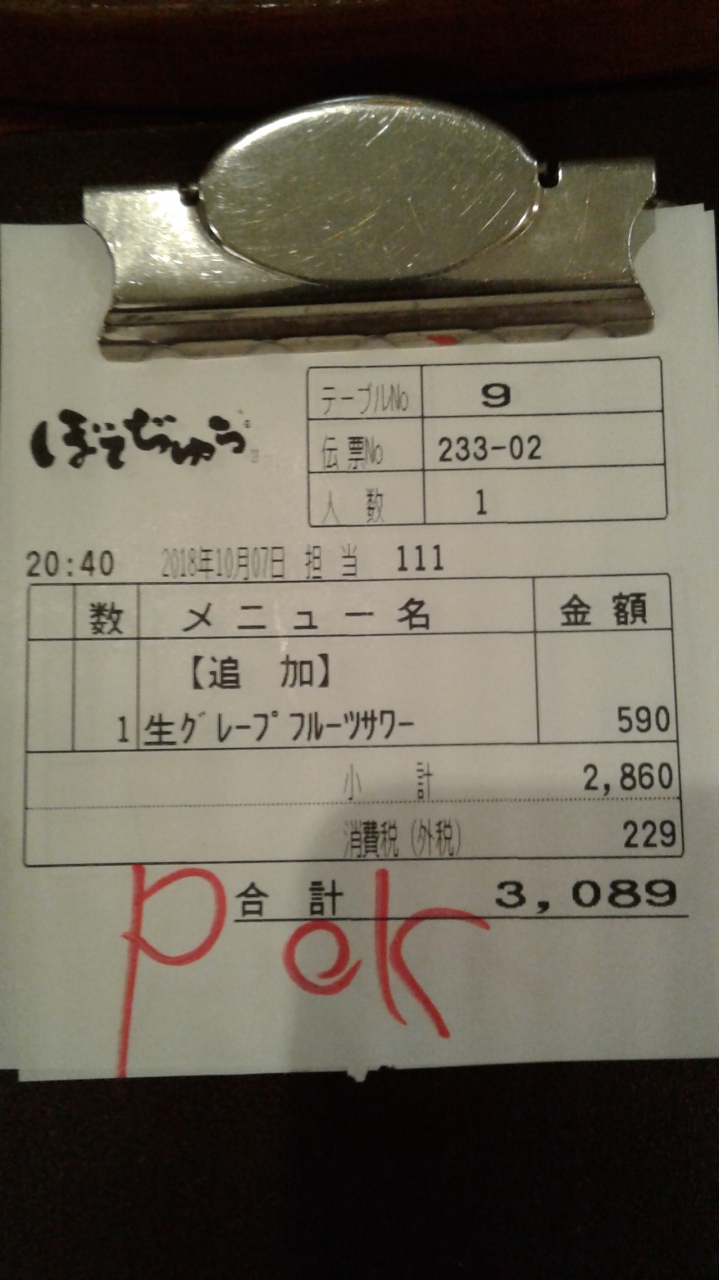 ぼてぢゅう
テーブルNo 9
伝票No 233-02
人数 1
20:40 2018年10月07日 担当 111
数 メニュー名 金額
【追 加】
1 生グレープフルーツサワー 590
小計 2,860
消費税(外税) 229
合計 3,089
P ok